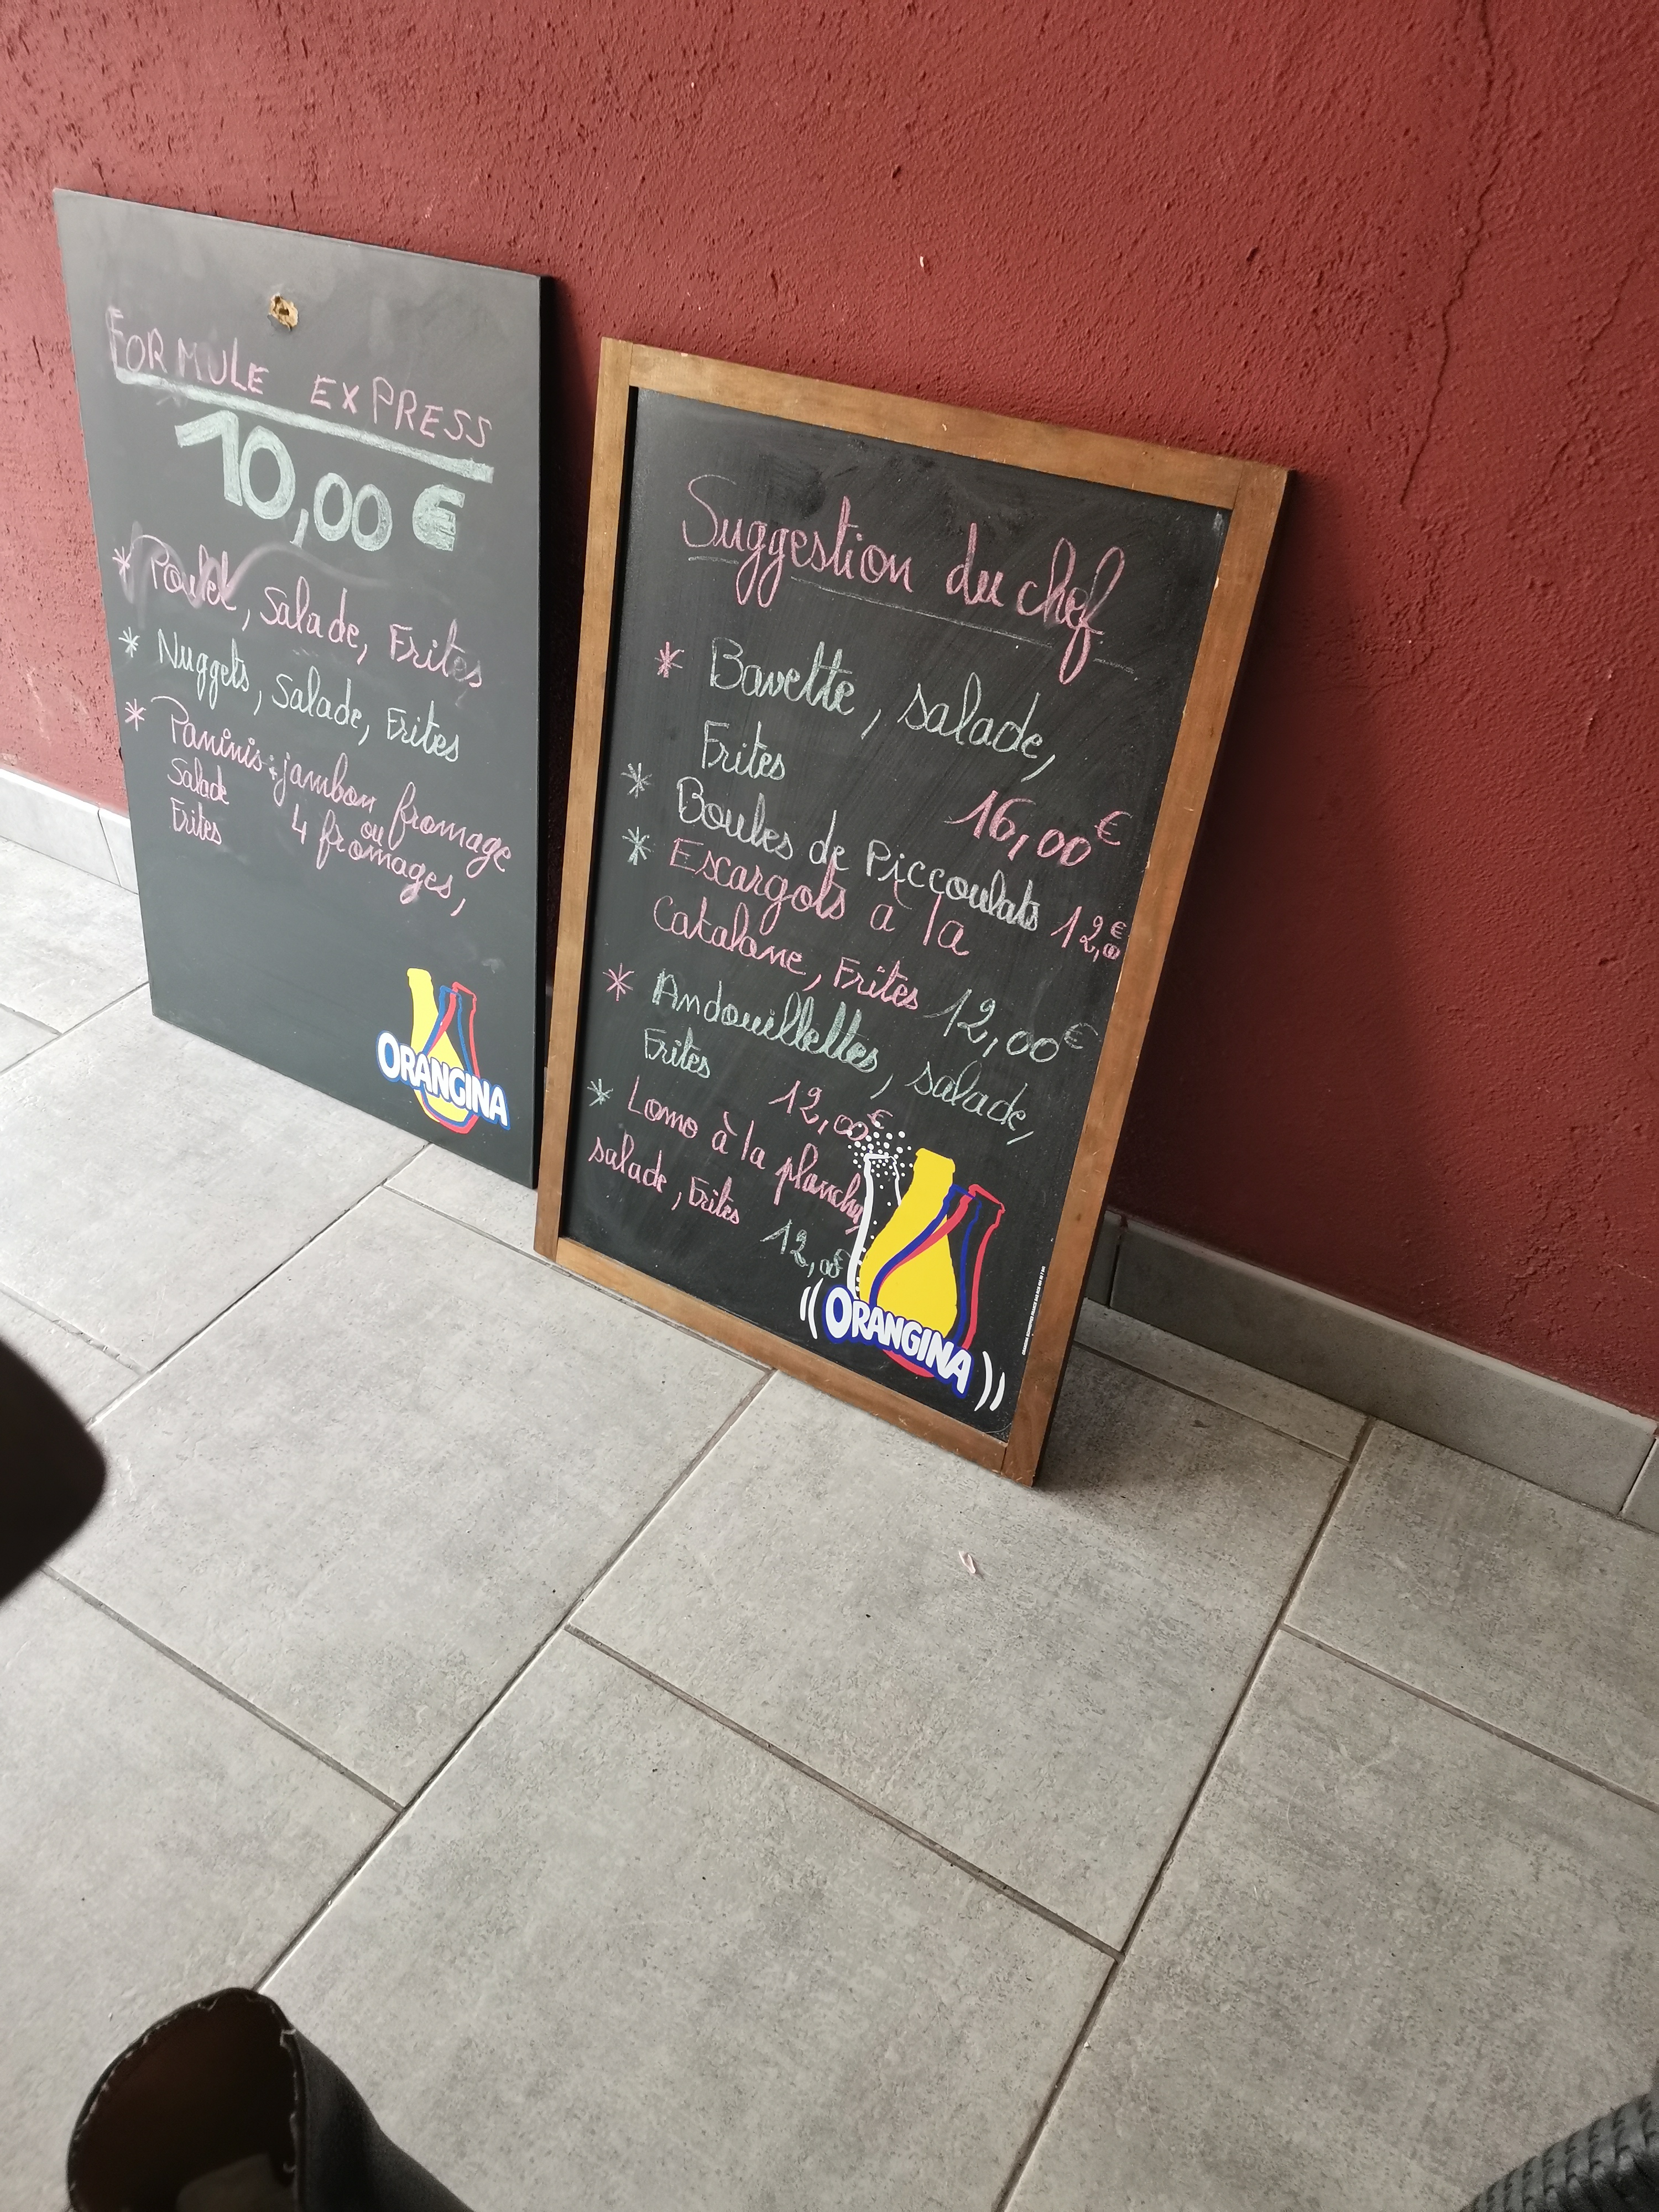 FORMULE EXPRESS
10,00 €
* Poulet, Salade, Frites
* Nuggets, Salade, Frites
* Paninis : jambon fromage
Salade ou
Frites 4 fromages,
ORANGINA
Suggestion du chef
* Bavette, salade,
Frites
16,00 €
* Boules de Piccoulats 12,00€
* Escargots à la
Catalane, Frites 12,00€
* Andouillettes, salade,
Frites 12,00€
* Lomo à la plancha
salade, Frites
12,00€
ORANGINA